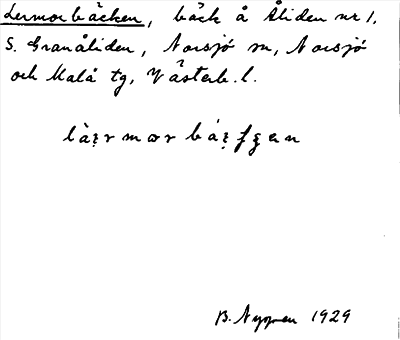 Lermorbäcken, bäck å Åliden nr 1,
S. Granåliden, Norsjö sn, Norsjö
och Malå tg, Västerb. l.
B. Nyman 1929